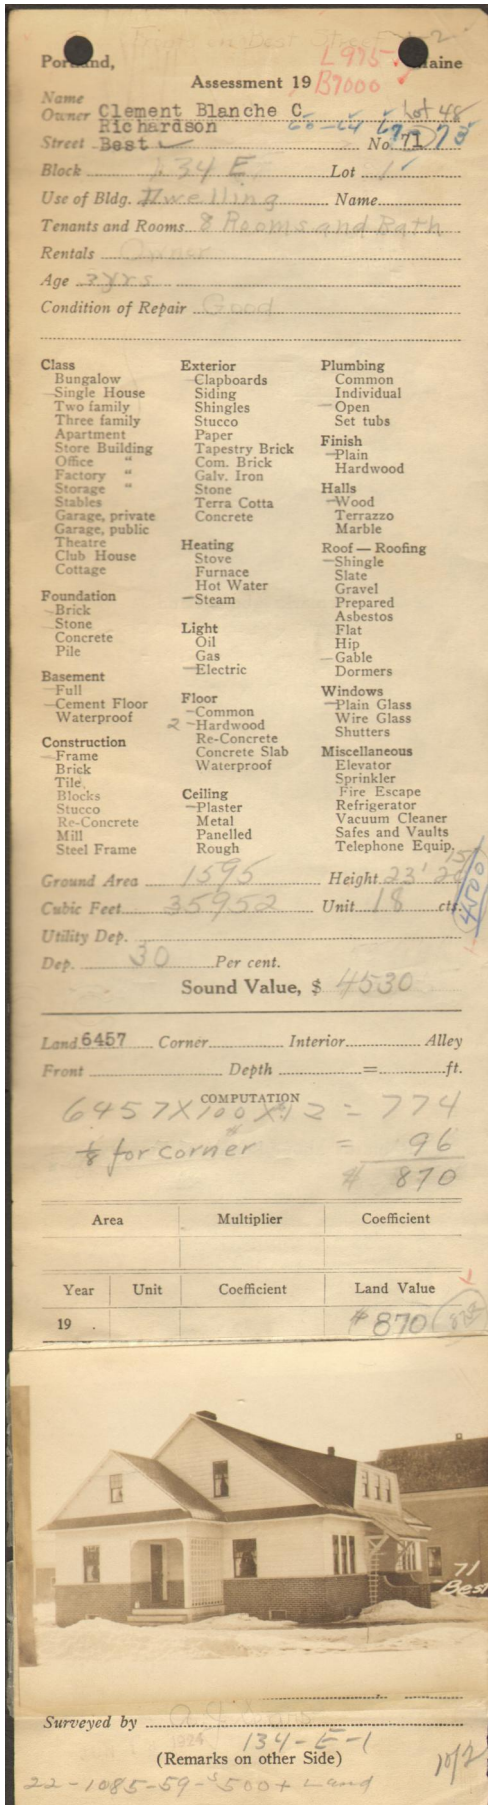 Portland, Maine
L 975
Assessment 19 B7000
Name
Owner Clement Blanche C. Lot 48
Richardson
Street Best No. 71 73
Block 134 E Lot 1
Use of Bldg. Dwelling Name
Tenants and Rooms 8 Rooms and Bath
Rentals Owner
Age 3 yrs
Condition of Repair Good
Class
Bungalow
Single House
Two family
Three family
Apartment
Store Building
Office "
Factory "
Storage "
Stables
Garage, private
Garage, public
Theatre
Club House
Cottage
Foundation
Brick
Stone
Concrete
Pile
Basement
Full
Cement Floor
Waterproof
Construction
Frame
Brick
Tile
Blocks
Stucco
Re-Concrete
Mill
Steel Frame
Exterior
Clapboards
Siding
Shingles
Stucco
Paper
Tapestry Brick
Com. Brick
Galv. Iron
Stone
Terra Cotta
Concrete
Heating
Stove
Furnace
Hot Water
Steam
Light
Oil
Gas
Electric
Floor
Common
2 Hardwood
Re-Concrete
Concrete Slab
Waterproof
Ceiling
Plaster
Metal
Panelled
Rough
Plumbing
Common
Individual
Open
Set tubs
Finish
Plain
Hardwood
Halls
Wood
Terrazzo
Marble
Roof — Roofing
Shingle
Slate
Gravel
Prepared
Asbestos
Flat
Hip
Gable
Dormers
Windows
Plain Glass
Wire Glass
Shutters
Miscellaneous
Elevator
Sprinkler
Fire Escape
Refrigerator
Vacuum Cleaner
Safes and Vaults
Telephone Equip.
Ground Area 1595 Height 23'
Cubic Feet 35952 Unit 18 cts. 4500
Utility Dep.
Dep. 30 Per cent.
Sound Value, $ 4530
Land 6457 Corner Interior Alley
Front Depth = ft.
COMPUTATION
6457 X 100 X 12 = 774
1/8 for corner = 96
$ 870
Area Multiplier Coefficient
Year Unit Coefficient Land Value
19 $ 870
71
Best
Surveyed by
134-E-1
(Remarks on other Side)
22-1085-59-$500+ Land